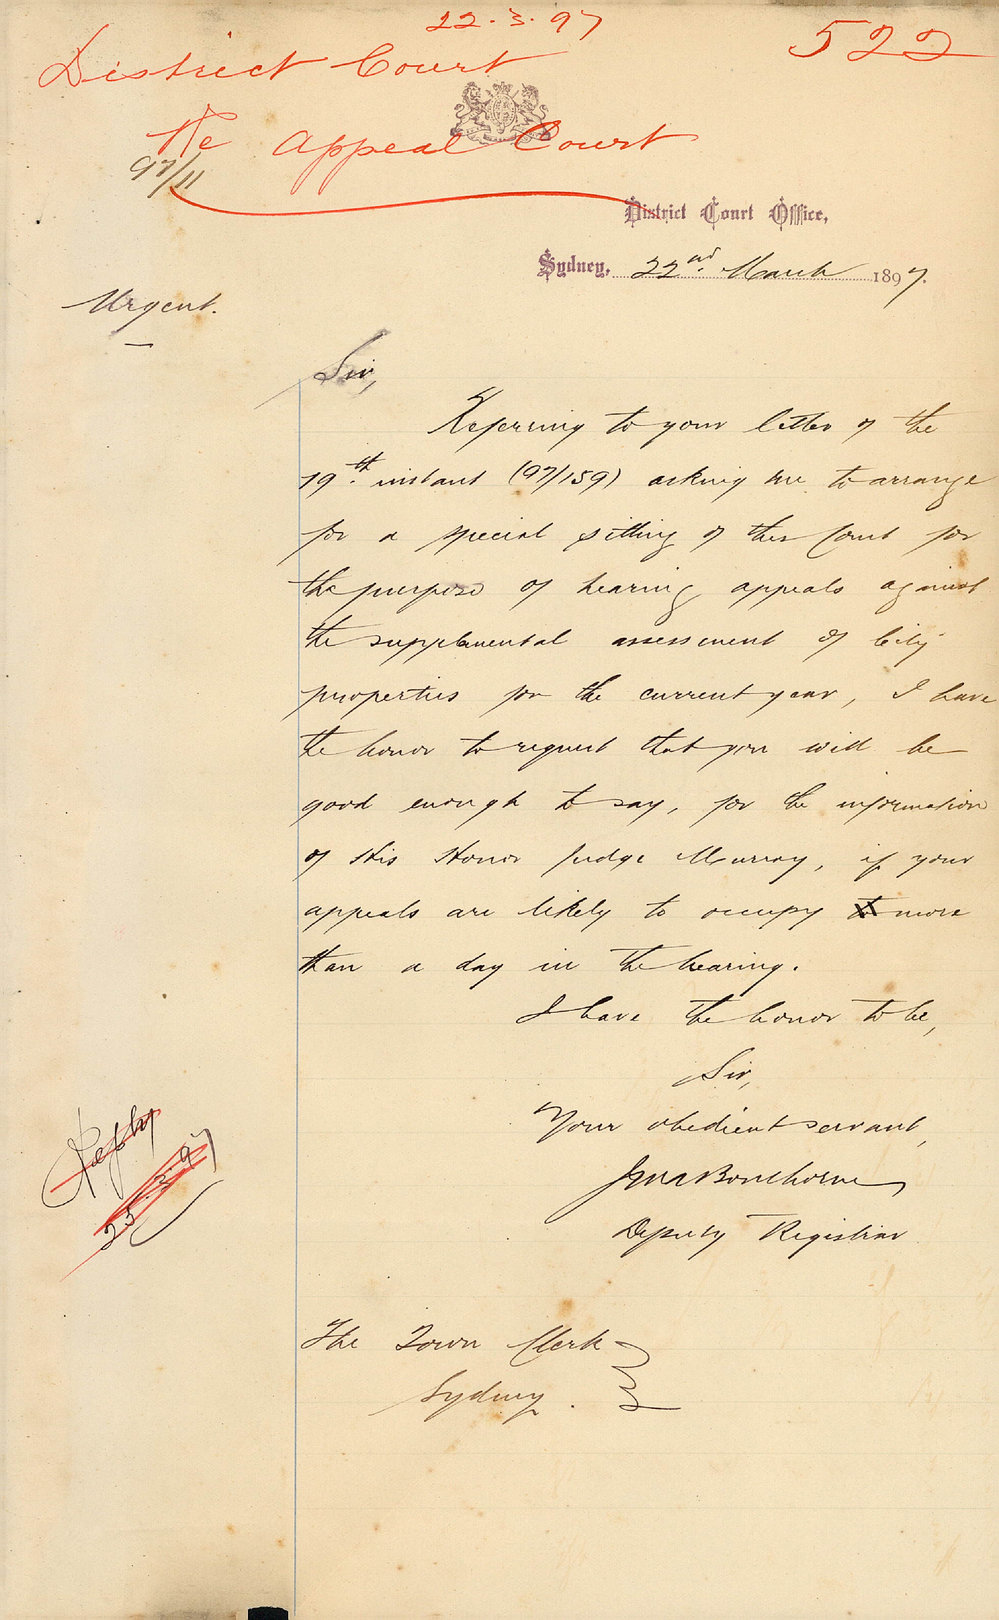 22.3.97
522
District Court
Re Appeal Court
97/11
District Court Office,
Sydney, 22nd. March 1897.
Urgent.
Sir,
Referring to your letter of the
19th. instant (97/159) asking me to arrange
for a special sitting of this Court for
the purpose of hearing appeals against
the supplemental assessment of City
properties for the current year, I have
the honor to request that you will be
good enough to say, for the information
of His Honor Judge Murray, if your
appeals are likely to occupy to more
than a day in the hearing.
I have the honor to be,
Sir,
Your obedient servant,
Bonthorne
Deputy Registrar
Reply
25.3.97
The Town Clerk
Sydney.